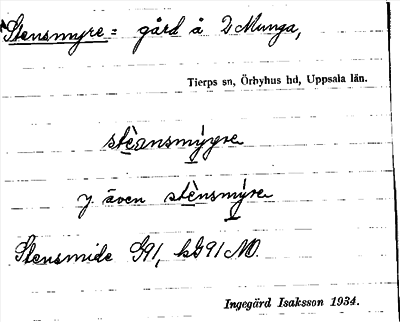 Stensmyre = gård å 2 Munga,
Tierps sn, Örbyhus hd, Uppsala län.
stènsmýyre
y. även stènsmýre
Stensmide G91, kG91 MD.
Ingegärd Isaksson 1934.